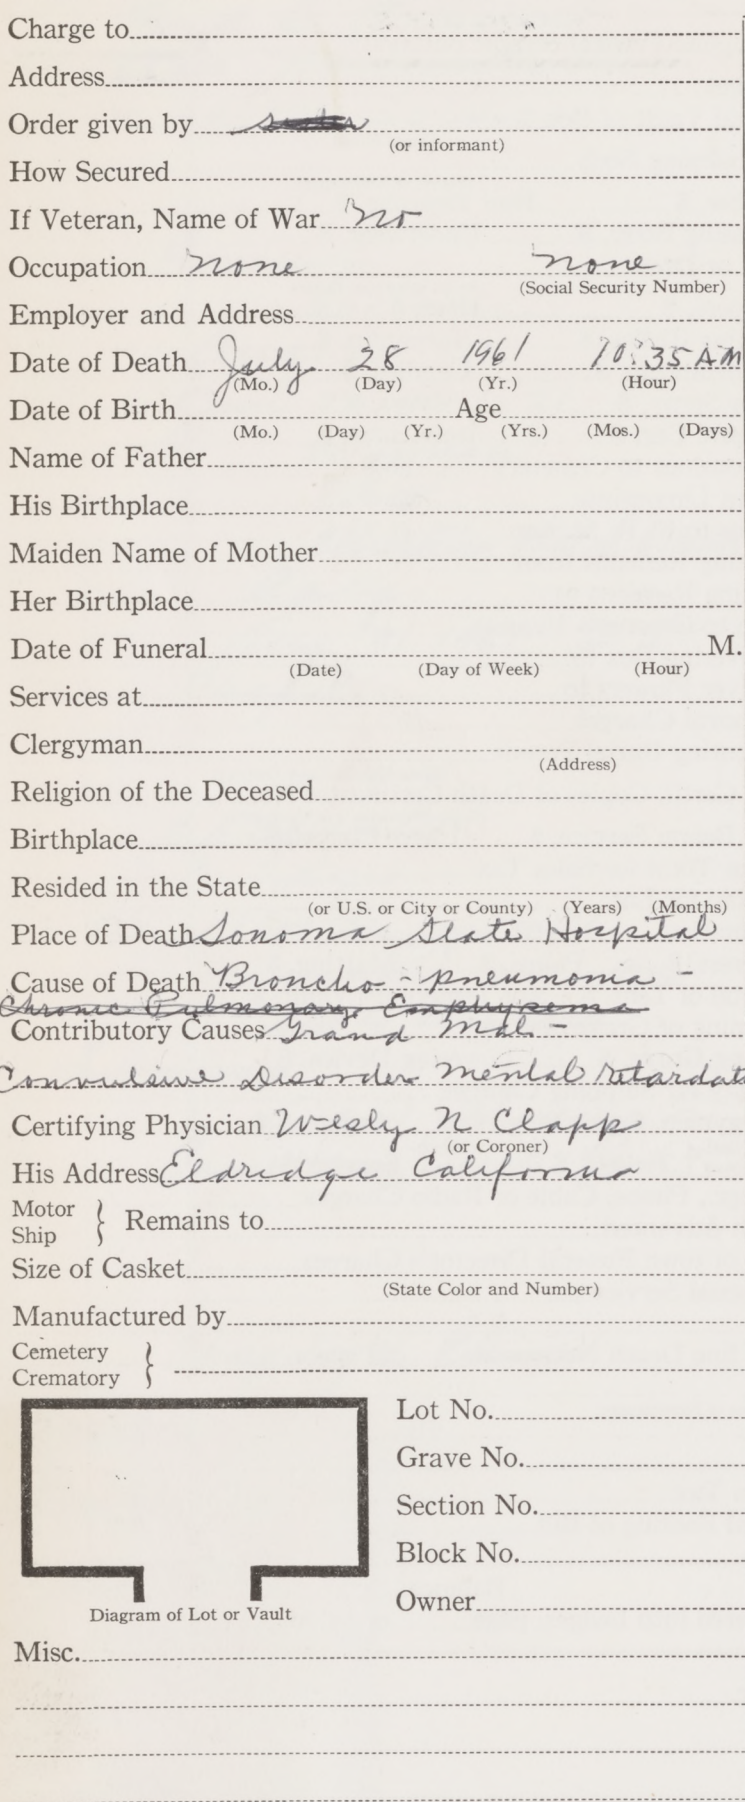 Charge to
Address
Order given by
(or informant)
How Secured
If Veteran, Name of War no
Occupation none none
(Social Security Number)
Employer and Address
Date of Death July 28 1961 10:35 AM
(Mo.) (Day) (Yr.) (Hour)
Date of Birth Age
(Mo.) (Day) (Yr.) (Yrs.) (Mos.) (Days)
Name of Father
His Birthplace
Maiden Name of Mother
Her Birthplace
Date of Funeral M.
(Date) (Day of Week) (Hour)
Services at
Clergyman
(Address)
Religion of the Deceased
Birthplace
Resided in the State
(or U.S. or City or County) (Years) (Months)
Place of Death Sonoma State Hospital
Cause of Death Broncho - pneumonia -
Chronic Pulmonary Emphysema
Contributory Causes Grand Mal -
Convulsive Disorder Mental retardat
Certifying Physician Wesly N Clapp
(or Coroner)
His Address Eldridge California
Motor
Ship } Remains to
Size of Casket
(State Color and Number)
Manufactured by
Cemetery
Crematory }
Lot No.
Grave No.
Section No.
Block No.
Owner
Diagram of Lot or Vault
Misc.